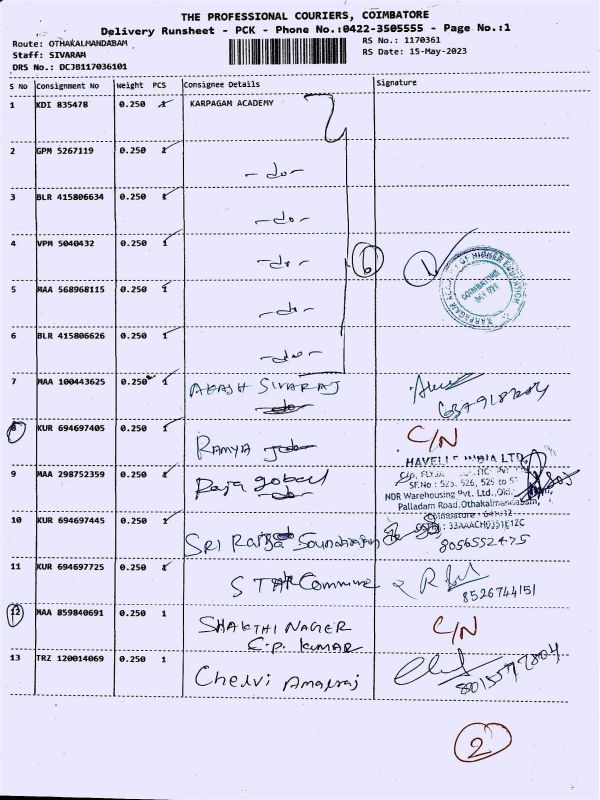 THE PROFESSIONAL COURIERS, COIMBATORE
Delivery Runsheet - PCK - Phone No.:0422-3505555 - Page No.:1
Route: OTHAKALMANDABAM
RS No.: 1170361
Staff: SIVARAM
RS Date: 15-May-2023
DRS No.: DCJB117036101
S No Consignment No Weight PCS Consignee Details Signature
1 KDI 835478 0.250 1 KARPAGAM ACADEMY
2 GPM 5267119 0.250 1
- do -
3 BLR 415806634 0.250 1
- do -
4 VPM 5040432 0.250 1
- do -
6
1
KARPAGAM ACADEMY OF HIGHER EDUCATION
COIMBATORE
641 021
5 MAA 568968115 0.250 1
- do -
6 BLR 415806626 0.250 1
- do -
7 MAA 100443625 0.250 1 AKASH SIVARAJ
8 KUR 694697405 0.250 1
RAMYA
C/N
HAVELLS INDIA LTD
9 MAA 298752359 0.250 1 Raja gobal
SF.No : 525, 526, 529 to
NDR Warehousing Pvt. Ltd.,
Palladam Road, Othakalmandabam,
Coimbatore
10 KUR 694697445 0.250 1
SRI Ranga Soundirajan
8056552475
11 KUR 694697725 0.250 1
STAR Commune
8526744151
12 MAA 859840691 0.250 1 SHAKTHI NAGER
C.P. KUMAR
C/N
13 TRZ 120014069 0.250 1
Chelvi Amalraj
2